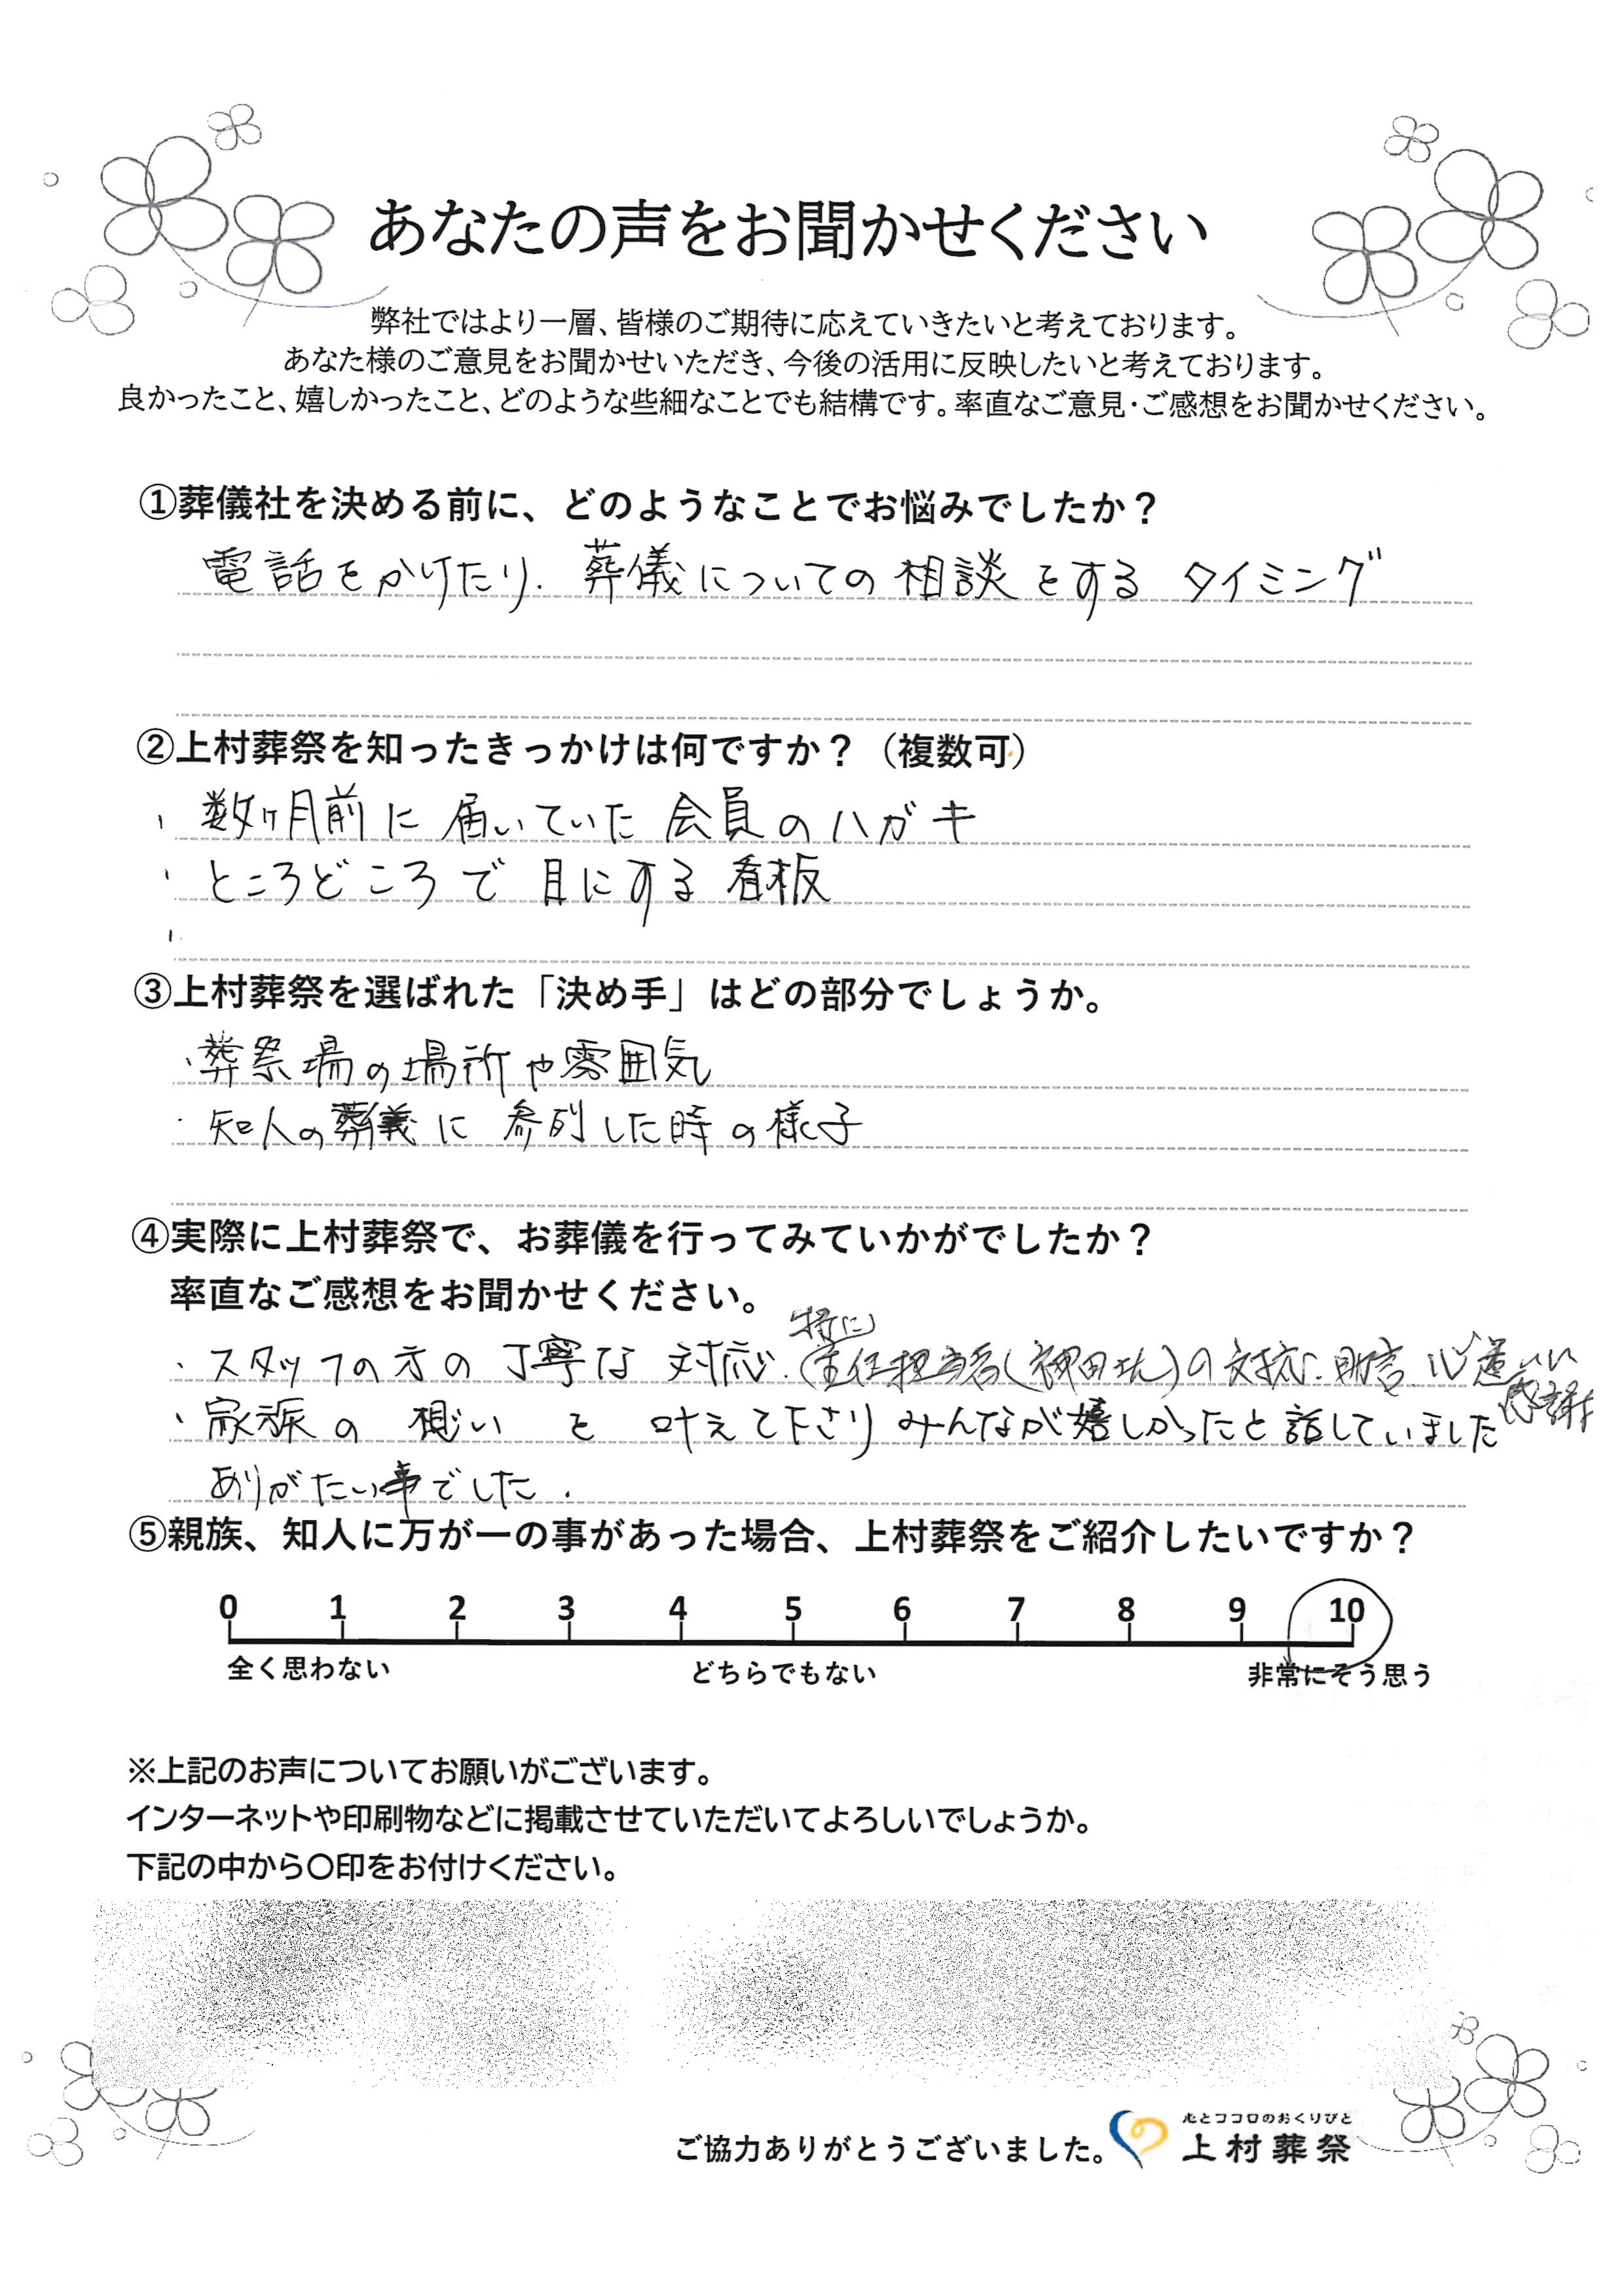 あなたの声をお聞かせください
弊社ではより一層、皆様のご期待に応えていきたいと考えております。
あなた様のご意見をお聞かせいただき、今後の活用に反映したいと考えております。
良かったこと、嬉しかったこと、どのような些細なことでも結構です。率直なご意見・ご感想をお聞かせください。
①葬儀社を決める前に、どのようなことでお悩みでしたか？
電話をかけたり、葬儀についての相談をするタイミング
②上村葬祭を知ったきっかけは何ですか？（複数可）
・数ヶ月前に届いていた会員のハガキ
・ところどころで目にする看板
・
③上村葬祭を選ばれた「決め手」はどの部分でしょうか。
・葬祭場の場所や雰囲気
・知人の葬儀に参列した時の様子
④実際に上村葬祭で、お葬儀を行ってみていかがでしたか？
率直なご感想をお聞かせください。
特に
・スタッフの方の丁寧な対応、(主任担当者()の対応、助言、心遣いに
感謝
・家族の想いを叶えて下さりみんなが嬉しかったと話していました
ありがたい事でした.
⑤親族、知人に万が一の事があった場合、上村葬祭をご紹介したいですか？
0 1 2 3 4 5 6 7 8 9 10
全く思わない どちらでもない 非常にそう思う
※上記のお声についてお願いがございます。
インターネットや印刷物などに掲載させていただいてよろしいでしょうか。
下記の中から〇印をお付けください。
心とココロのおくりびと
ご協力ありがとうございました。 上村葬祭